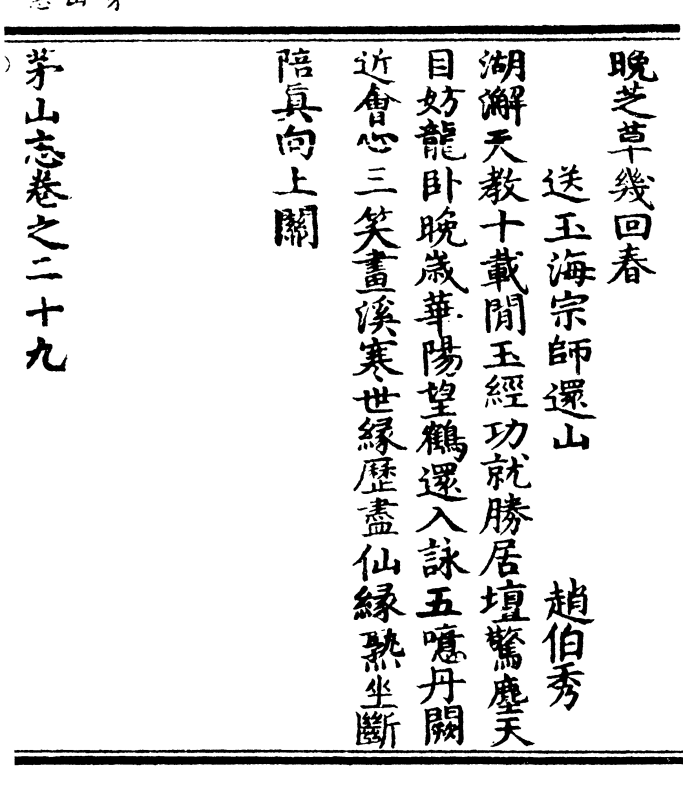 晚芝草幾回春
送玉海宗師還山 趙伯秀
湖澥天教十載閒玉經功就勝居壇驚塵天
目妨龍卧晚歲華陽望鶴還入詠五噫丹闕
近會心三笑畫溪寒世緣歷盡仙緣熟坐斷
陪真向上關
茅山志卷之二十九